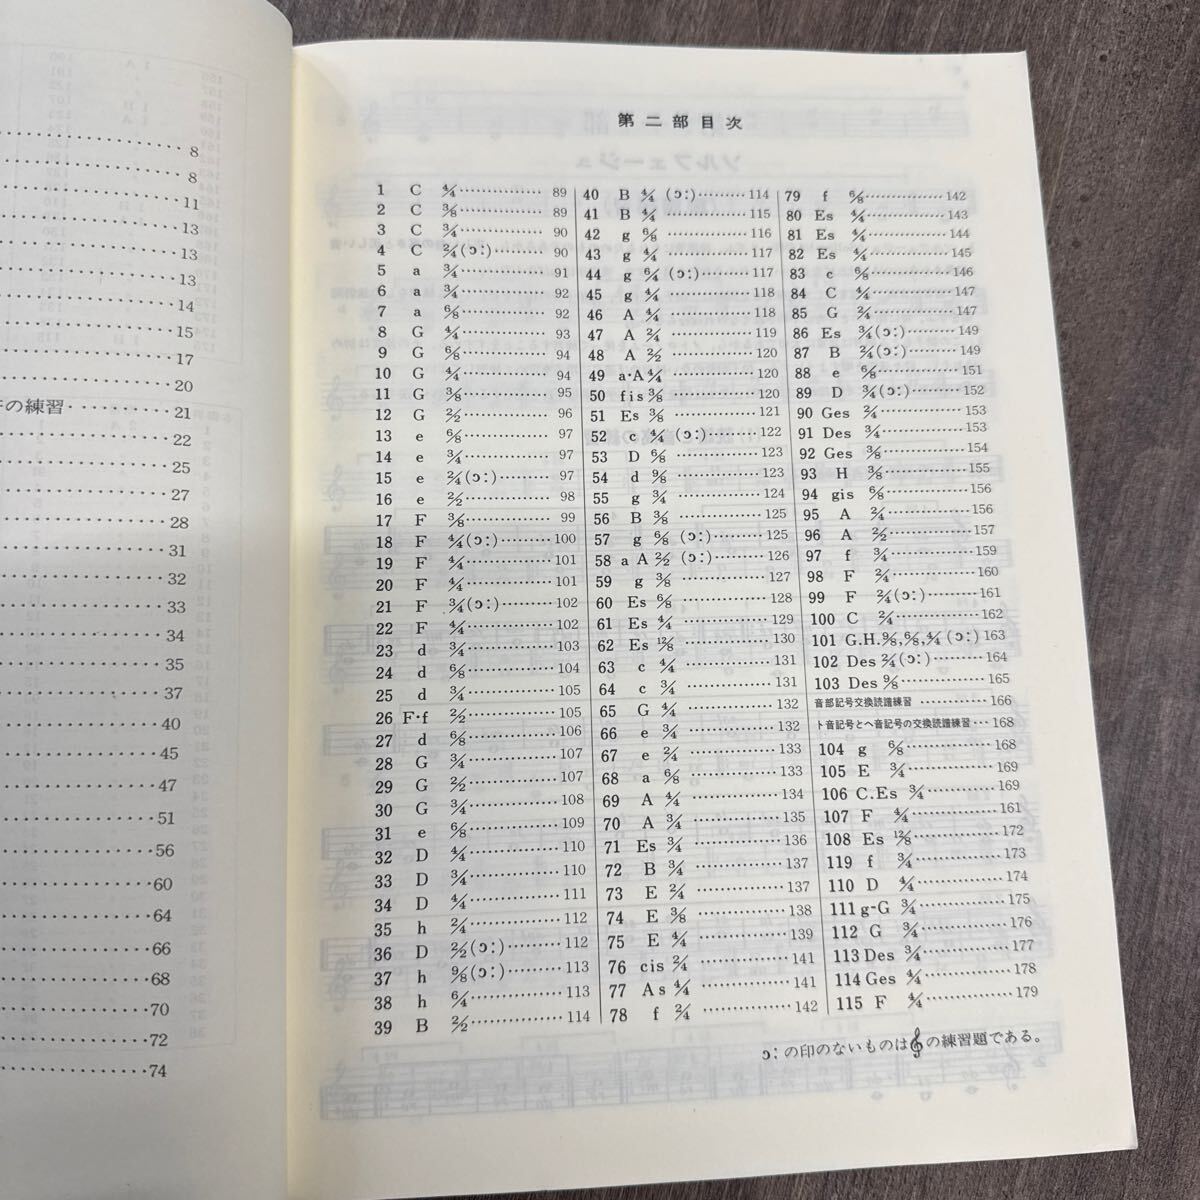 8
8
11
13
13
13
14
15
17
20
の練習 21
22
25
27
28
31
32
33
34
35
37
40
45
47
51
56
60
64
66
68
70
72
74
第二部目次
1 C 4/4 89
2 C 3/8 89
3 C 3/4 90
4 C 2/4 (ɔ:) 90
5 a 3/4 91
6 a 3/4 92
7 a 6/8 92
8 G 4/4 93
9 G 6/8 94
10 G 4/4 94
11 G 3/8 95
12 G 2/2 96
13 e 6/8 97
14 e 3/4 97
15 e 2/4 (ɔ:) 97
16 e 2/2 98
17 F 3/8 99
18 F 4/4 (ɔ:) 100
19 F 4/4 101
20 F 4/4 101
21 F 3/4 (ɔ:) 102
22 F 4/4 102
23 d 3/4 103
24 d 6/8 104
25 d 3/4 105
26 F・f 2/2 105
27 d 6/8 106
28 G 3/4 107
29 G 2/2 107
30 G 3/4 108
31 e 6/8 109
32 D 4/4 110
33 D 3/4 110
34 D 4/4 111
35 h 2/4 112
36 D 2/2 (ɔ:) 112
37 h 9/8 (ɔ:) 113
38 h 6/4 113
39 B 2/2 114
40 B 4/4 (ɔ:) 114
41 B 4/4 115
42 g 6/8 116
43 g 4/4 117
44 g 6/4 (ɔ:) 117
45 g 4/4 118
46 A 4/4 118
47 A 2/4 119
48 A 2/2 120
49 a・A 4/4 120
50 fis 3/8 120
51 Es 3/8 121
52 c 4/4 (ɔ:) 122
53 D 6/8 123
54 d 9/8 123
55 g 3/4 124
56 B 3/8 125
57 g 6/8 (ɔ:) 125
58 a A 2/2 (ɔ:) 126
59 g 3/8 127
60 Es 6/8 128
61 Es 4/4 129
62 Es 12/8 130
63 c 4/4 131
64 c 3/4 131
65 G 4/4 132
66 e 3/4 132
67 e 2/4 133
68 a 6/8 133
69 A 4/4 134
70 A 3/4 135
71 Es 3/4 136
72 B 3/4 137
73 E 2/4 137
74 E 3/8 138
75 E 4/4 139
76 cis 2/4 141
77 As 4/4 141
78 f 2/4 142
79 f 6/8 142
80 Es 4/4 143
81 Es 4/4 144
82 Es 4/4 145
83 c 6/8 146
84 C 4/4 147
85 G 2/4 147
86 Es 3/4 (ɔ:) 149
87 B 2/4 (ɔ:) 149
88 e 6/8 151
89 D 3/4 (ɔ:) 152
90 Ges 2/4 153
91 Des 3/4 153
92 Ges 3/8 154
93 H 3/8 155
94 gis 6/8 156
95 A 2/4 156
96 A 2/2 157
97 f 3/4 159
98 F 2/4 160
99 F 2/4 (ɔ:) 161
100 C 2/4 162
101 G.H. 9/8, 6/8, 4/4 (ɔ:) 163
102 Des 2/4 (ɔ:) 164
103 Des 9/8 165
音部記号交換読譜練習 166
ト音記号とヘ音記号の交換読譜練習 168
104 g 6/8 168
105 E 3/4 169
106 C.Es 3/4 169
107 F 4/4 161
108 Es 12/8 172
119 f 3/4 173
110 D 4/4 174
111 g-G 3/4 175
112 G 3/4 176
113 Des 3/4 177
114 Ges 4/4 178
115 F 4/4 179
ɔ:の印のないものは𝄞の練習題である。